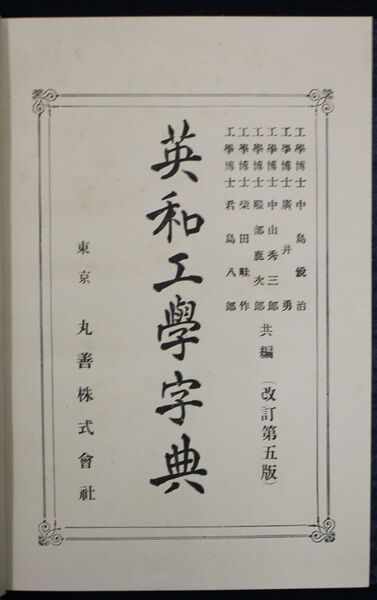 工學博士 中島銳治
工學博士 廣井勇
工學博士 中山秀三郎
工學博士 服部鹿次郎
工學博士 柴田畦作
工學博士 君島八郎
共編
(改訂第五版)
英和工學字典
東京 丸善株式會社